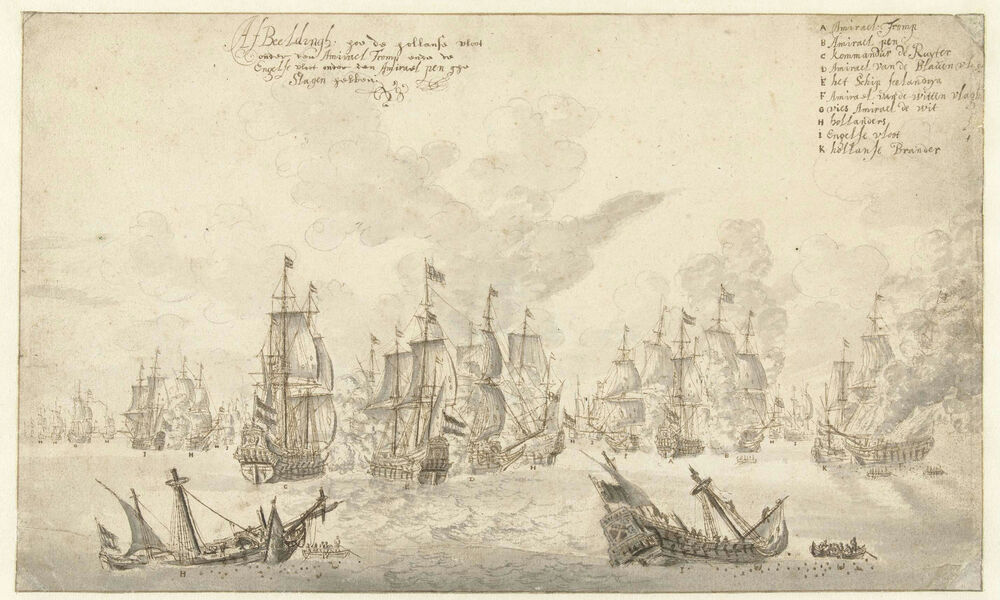 AfBeeldingh. hoe de hollanse vloot
onder den Amirael Tromp ende de
Engelse vloot onder den Amirael pen
Slagen hebben
A Amirael Tromp
B Amirael pen
C Kommandur de Ruyter
D Amirael van de Blauen
E het Schip
F Amirael van de witten vlagh
G vies Amirael de wit
H hollanders
I Engelse vloot
K hollanse Brander
G
I
H
C
D
H
I
A
B
K
H
I